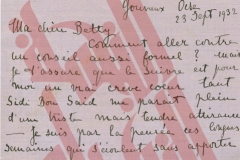 23 Sept 1932
Ma chère Betty
Comment aller contre
un conseil aussi formel ? mais
je t'assure que la Suisse est pour
moi un vrai crève coeur tant
Sidi Bou Said me paraît plein
d'un triste mais tendre
— Je suis par la pensée ces longues
semaines qui s'écoulent sans apporter